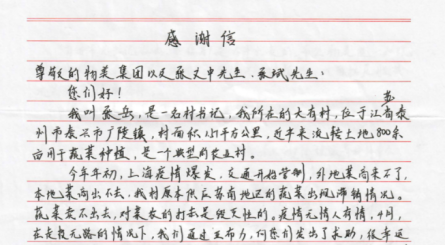 感谢信
尊敬的物美集团以及张文中先生、张斌先生：
您们好！
我叫张岳，是一名村书记，我所在的大有村，位于江苏泰
州市泰兴市广陵镇，村面积 平方公里，近年来流转土地800余
亩用于蔬菜种植，是一个典型的农业村。
今年年初，上海疫情爆发，交通开始管制，外地菜商来不了，
本地菜商出不去，我村原本供应苏南地区的蔬菜出现滞销情况。
蔬菜卖不出去，对菜农的打击是毁灭性的。疫情无情人有情，4月，
在走投无路的情况下，我们通过 向您们发出了求助，很幸运